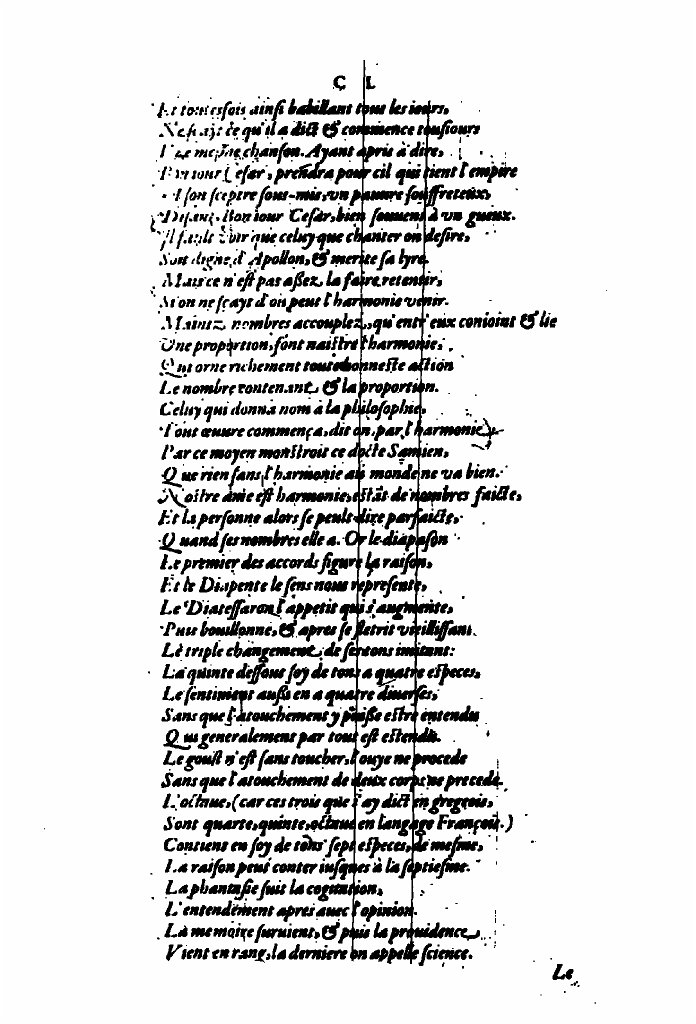 C L
Et toutesfois ainsi babillant tous les iours,
Ne sçayt ce qu'il a dict & commence tousiours
mesme chanson. Ayant apris à dire,
Bon iour Cesar, prendra pour cil qui tient l'empire
son sceptre sous-mis, vn pauure souffreteux,
Disant, Bon iour Cesar, bien souuent à vn gueux.
Il semble que celuy que chanter on desire,
Soit digne d'Apollon, & merite sa lyre.
Mais ce n'est pas aßez, la faire retentir,
Si on ne sçayt d'ou peut l'harmonie venir.
Maintz nombres accouplez, qu'entr'eux conioint & lie
Vne proportion, font naistre l'harmonie,
Qui orne richement toute bonneste action
Le nombre contenant, & la proportion.
Celuy qui donna nom à la philosophie,
Tout œuure commença, dit on, par l'harmonie
Par ce moyen monstroit ce docte Samien,
Que rien sans l'harmonie au monde ne va bien.
Nostre ame est harmonie, estãt de nombres faicte,
Et la personne alors se peult dire parfaicte,
Quand ses nombres elle a. Or le diapason
Le premier des accords figure la raison,
Et le Diapente le sens nous represente,
Le Diatessaron l'appetit qui s'augmente,
Puis bouillonne, & apres se fletrit vieillissant.
Le triple changement, de ses tons imitant:
La quinte dessous soy de tons a quatre especes,
Le sentiment außi en a quatre diuerses,
Sans que l'atouchement y puiße estre entendu
Qui generalement par tout est estendu.
Le goust n'est sans toucher, l'ouye ne procede
Sans que l'atouchement de deux corps ne precede.
L'octaue, (car ces trois que i'ay dict en gregeois,
Sont quarte, quinte, octaue en langage François.)
Contient en soy de tons sept especes, de mesme,
La raison peut conter iusques à la septiesme.
La phantasie suit la cogitation,
L'entendement apres auec l'opinion.
La memoire suruient, & puis la prouidence
Vient en rang, la derniere on appelle science.
Le